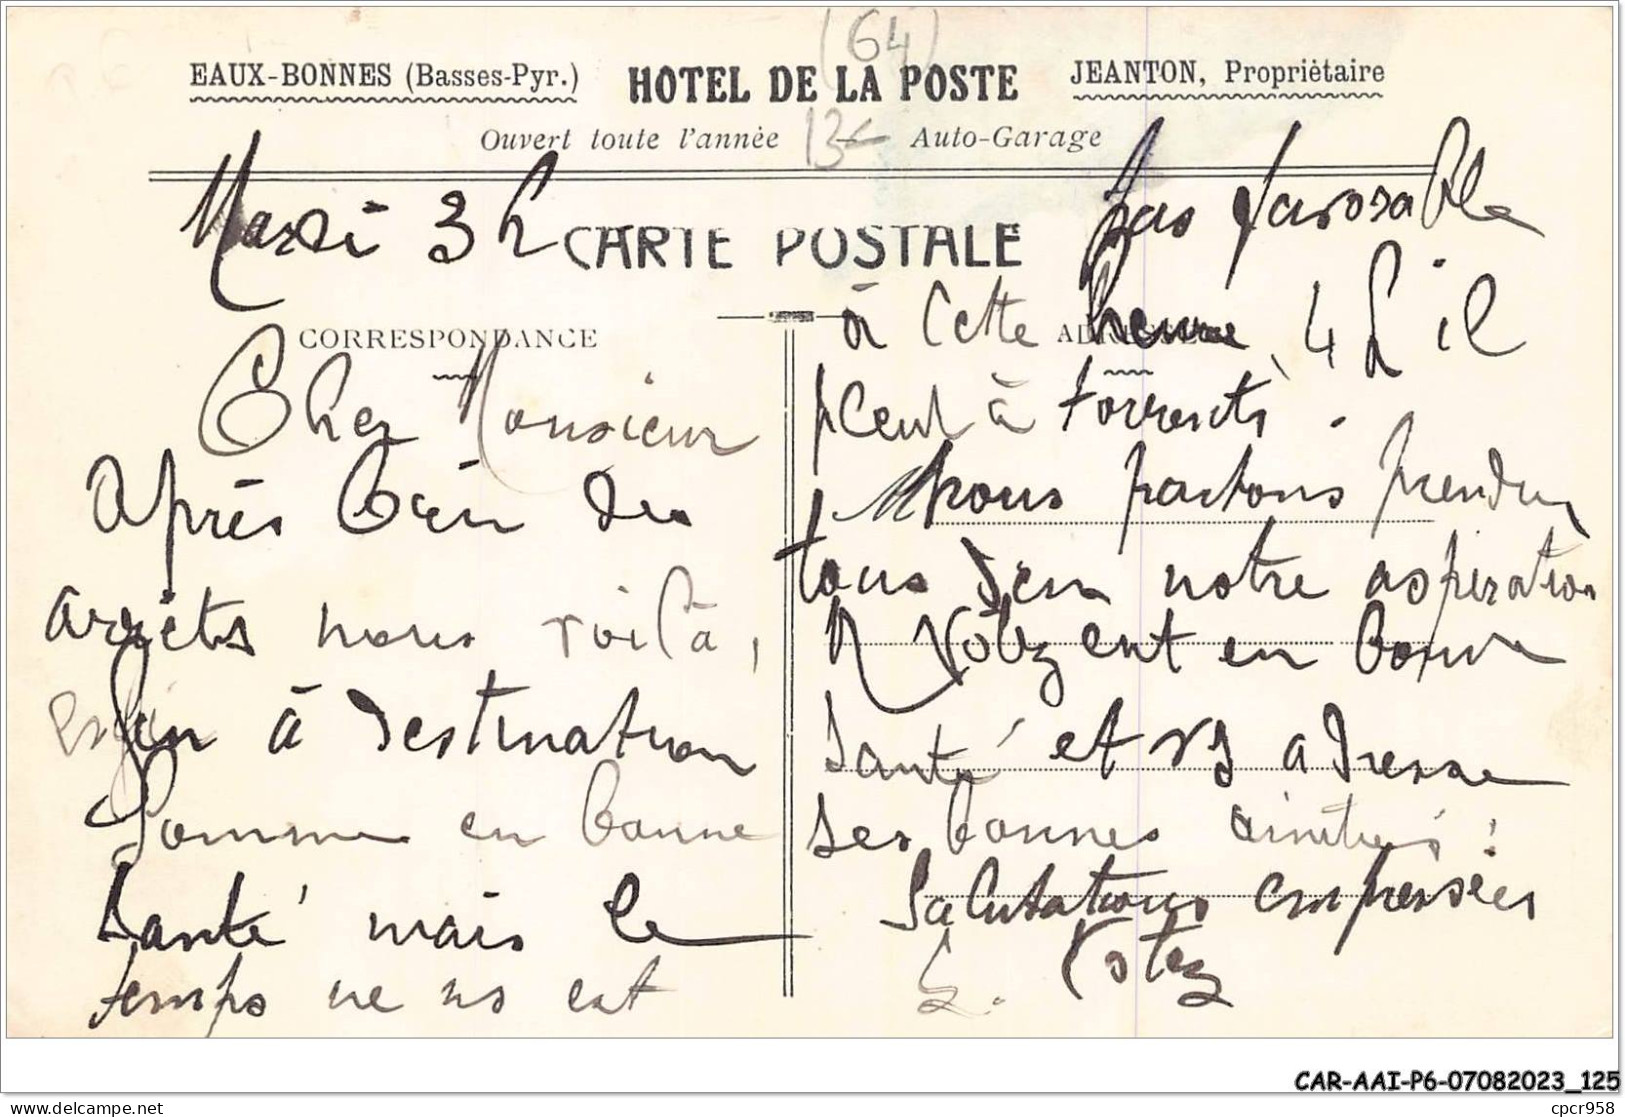 (64)
EAUX-BONNES (Basses-Pyr.) HOTEL DE LA POSTE JEANTON, Propriètaire
Ouvert toute l'annèe 13 Auto-Garage
CARTE POSTALE
CORRESPONDANCE
Mardi 3 h
Cher Monsieur
après bien des
arrêts nous voilà,
enfin à destination
Somme en bonne
santé mais le
temps ne ns est
ADRESSE
pas favorable
à cette heure, 4 h il
pleut à torrents.
nous partons prendre
tous d'en notre aspiration
est en bonne
santé et vs adresse
ses bonnes amitiés.
Salutations empressées
CAR-AAI-P6-07082023_125
delcampe.net
cpcr958